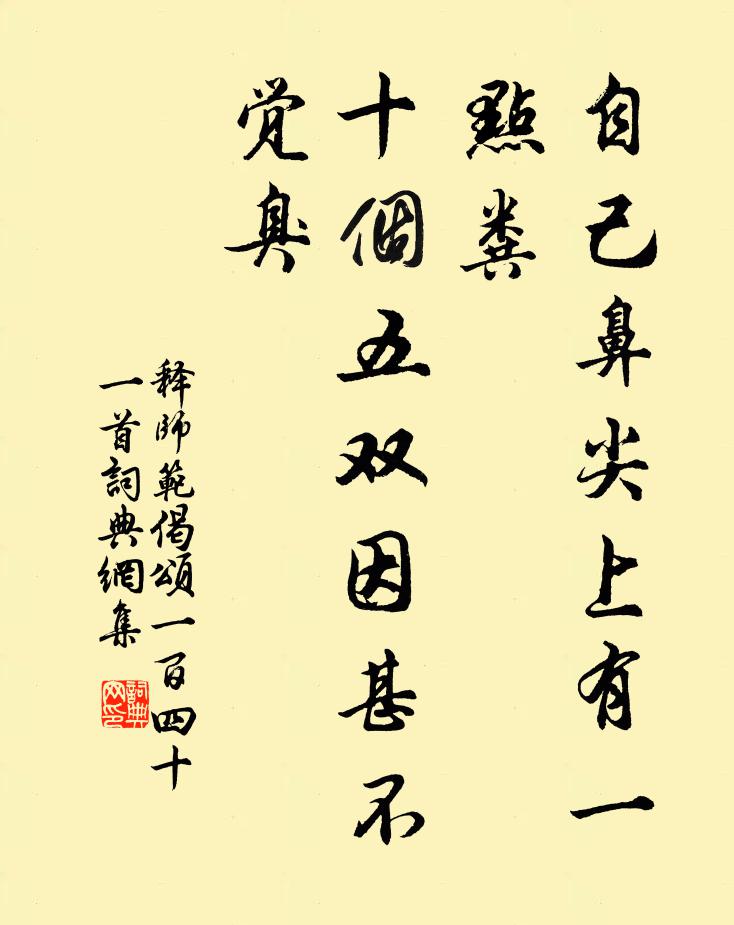 自己鼻尖上有一
點粪
十個五双因甚不
觉臭
释師範偈頌一百四十
一首詞典網集
詞典
网印